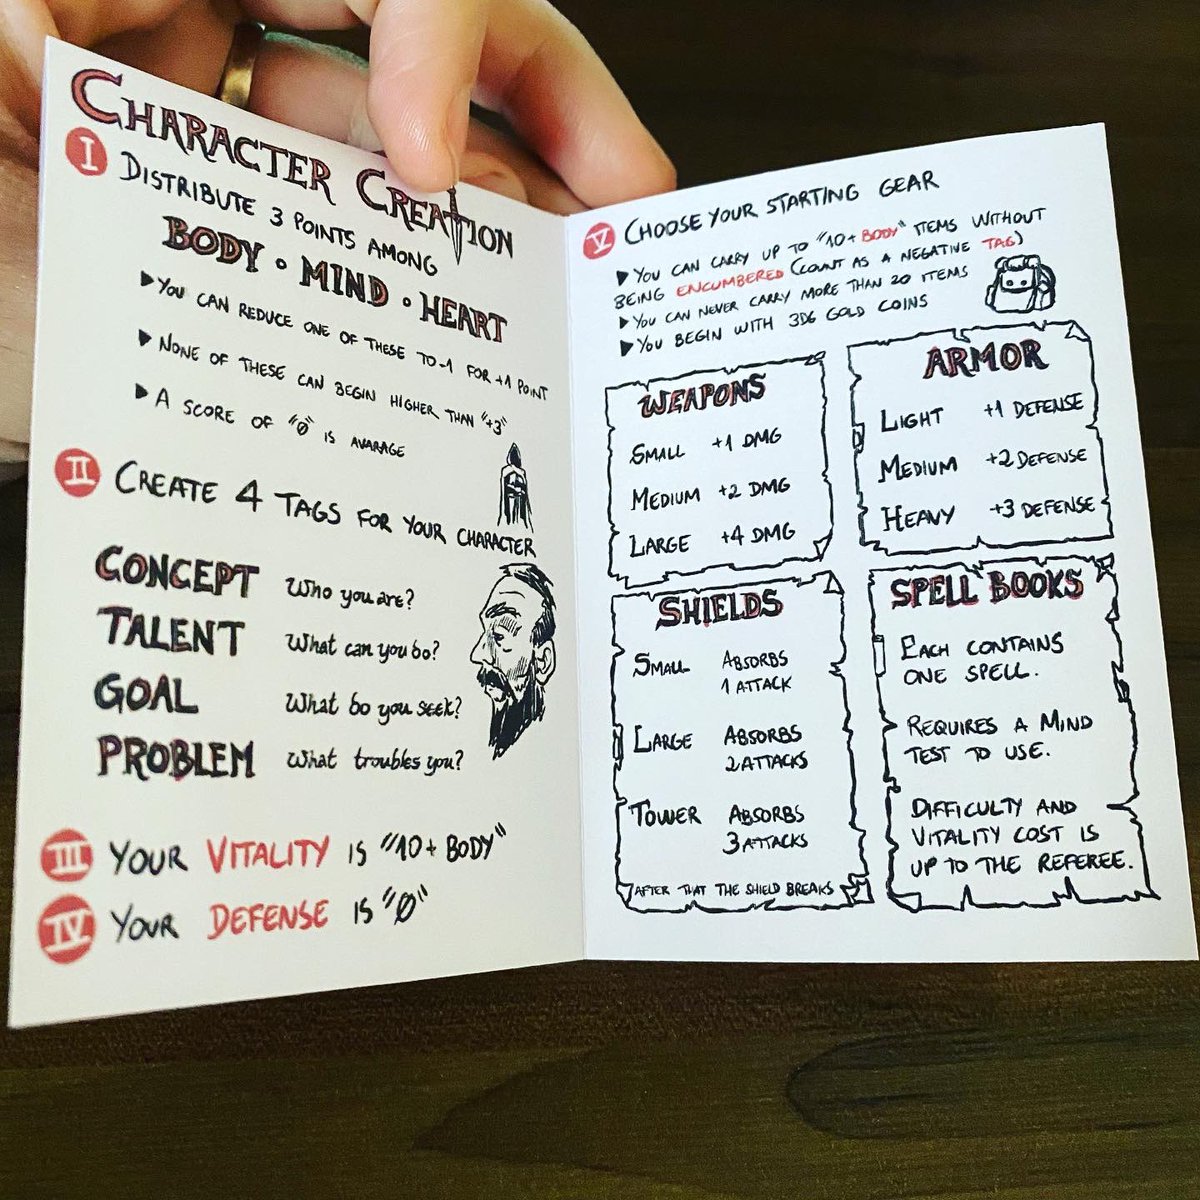 CHARACTER CREATION
I DISTRIBUTE 3 POINTS AMONG
BODY • MIND • HEART
▶ YOU CAN REDUCE ONE OF THESE TO -1 FOR +1 POINT
▶ NONE OF THESE CAN BEGIN HIGHER THAN "+3"
▶ A SCORE OF "0" IS AVARAGE
II CREATE 4 TAGS FOR YOUR CHARACTER
CONCEPT Who you are?
TALENT What can you do?
GOAL What do you seek?
PROBLEM What troubles you?
III YOUR VITALITY IS "10+ BODY"
IV YOUR DEFENSE IS "0"
V CHOOSE YOUR STARTING GEAR
▶ YOU CAN CARRY UP TO "10+ BODY" ITEMS WITHOUT
BEING ENCUMBERED (COUNT AS A NEGATIVE TAG)
▶ YOU CAN NEVER CARRY MORE THAN 20 ITEMS
▶ YOU BEGIN WITH 3D6 GOLD COINS
WEAPONS
SMALL +1 DMG
MEDIUM +2 DMG
LARGE +4 DMG
ARMOR
LIGHT +1 DEFENSE
MEDIUM +2 DEFENSE
HEAVY +3 DEFENSE
SHIELDS
SMALL ABSORBS
1 ATTACK
LARGE ABSORBS
2 ATTACKS
TOWER ABSORBS
3 ATTACKS
AFTER THAT THE SHIELD BREAKS
SPELL BOOKS
EACH CONTAINS
ONE SPELL.
REQUIRES A MIND
TEST TO USE.
DIFFICULTY AND
VITALITY COST IS
UP TO THE REFEREE.